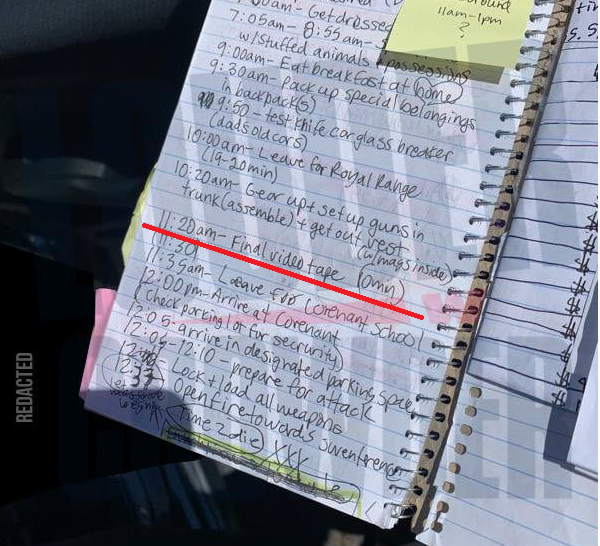 11am-1pm
?
Get dressed
7:05am- 8:55am-
w/stuffed animals + possessions
9:00am- Eat breakfast at home
9:30am- Pack up special belongings
in backpack(s)
9:50- test knife car glass breaker
(dads old cars)
10:00am- Leave for Royal Range
(19-20min)
10:20am- Gear up + set up guns in
trunk (assemble) + get out vest
(w/mags inside)
11:20am- Final video tape (omw)
(11:30)
11:35am- Leave for Covenant School
12:00pm- Arrive at Covenant
(check parking lot for security)
12:05- arrive in designated parking space
12:10- prepare for attack
Lock + load all weapons
12:33
Open fire towards
Time 2 die XXX
REDACTED